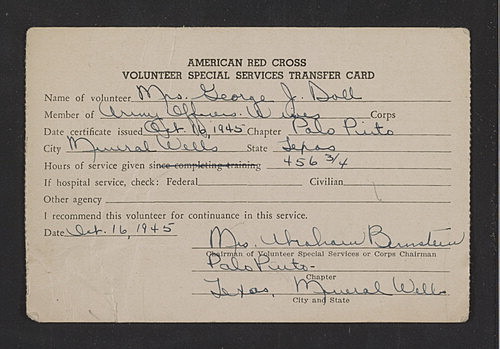 AMERICAN RED CROSS
VOLUNTEER SPECIAL SERVICES TRANSFER CARD
Name of volunteer Mrs. George J. Doll
Member of Army Officers Wives Corps
Date certificate issued Oct. 16, 1945 Chapter Palo Pinto
City Mineral Wells State Texas
Hours of service given since completing training 456 3/4
If hospital service, check: Federal Civilian
Other agency
I recommend this volunteer for continuance in this service.
Date Oct. 16, 1945
Mrs. Abraham Bernstein
Chairman of Volunteer Special Services or Corps Chairman
Palo Pinto-
Chapter
Texas, Mineral Wells
City and State